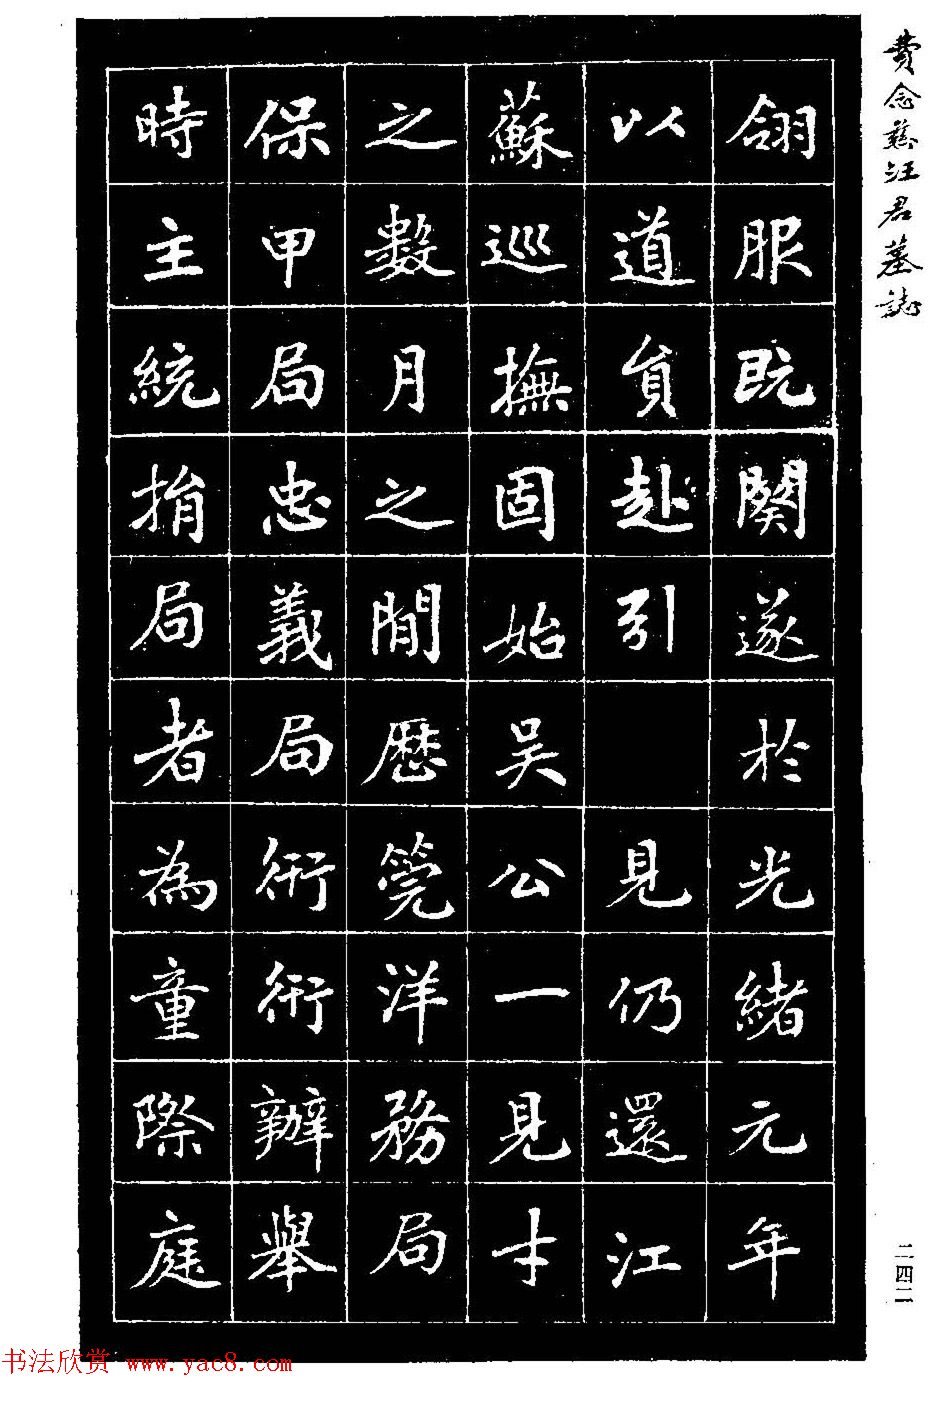 費念慈汪君墓誌
翎服既闋遂於光緒元年
以道員赴引 見仍還江
蘇巡撫固始吳公一見才
之數月之閒歷筦洋務局
保甲局忠義局衎衎辦舉
時主統捐局者為童際庭
二四二
书法欣赏 www.yac8.com